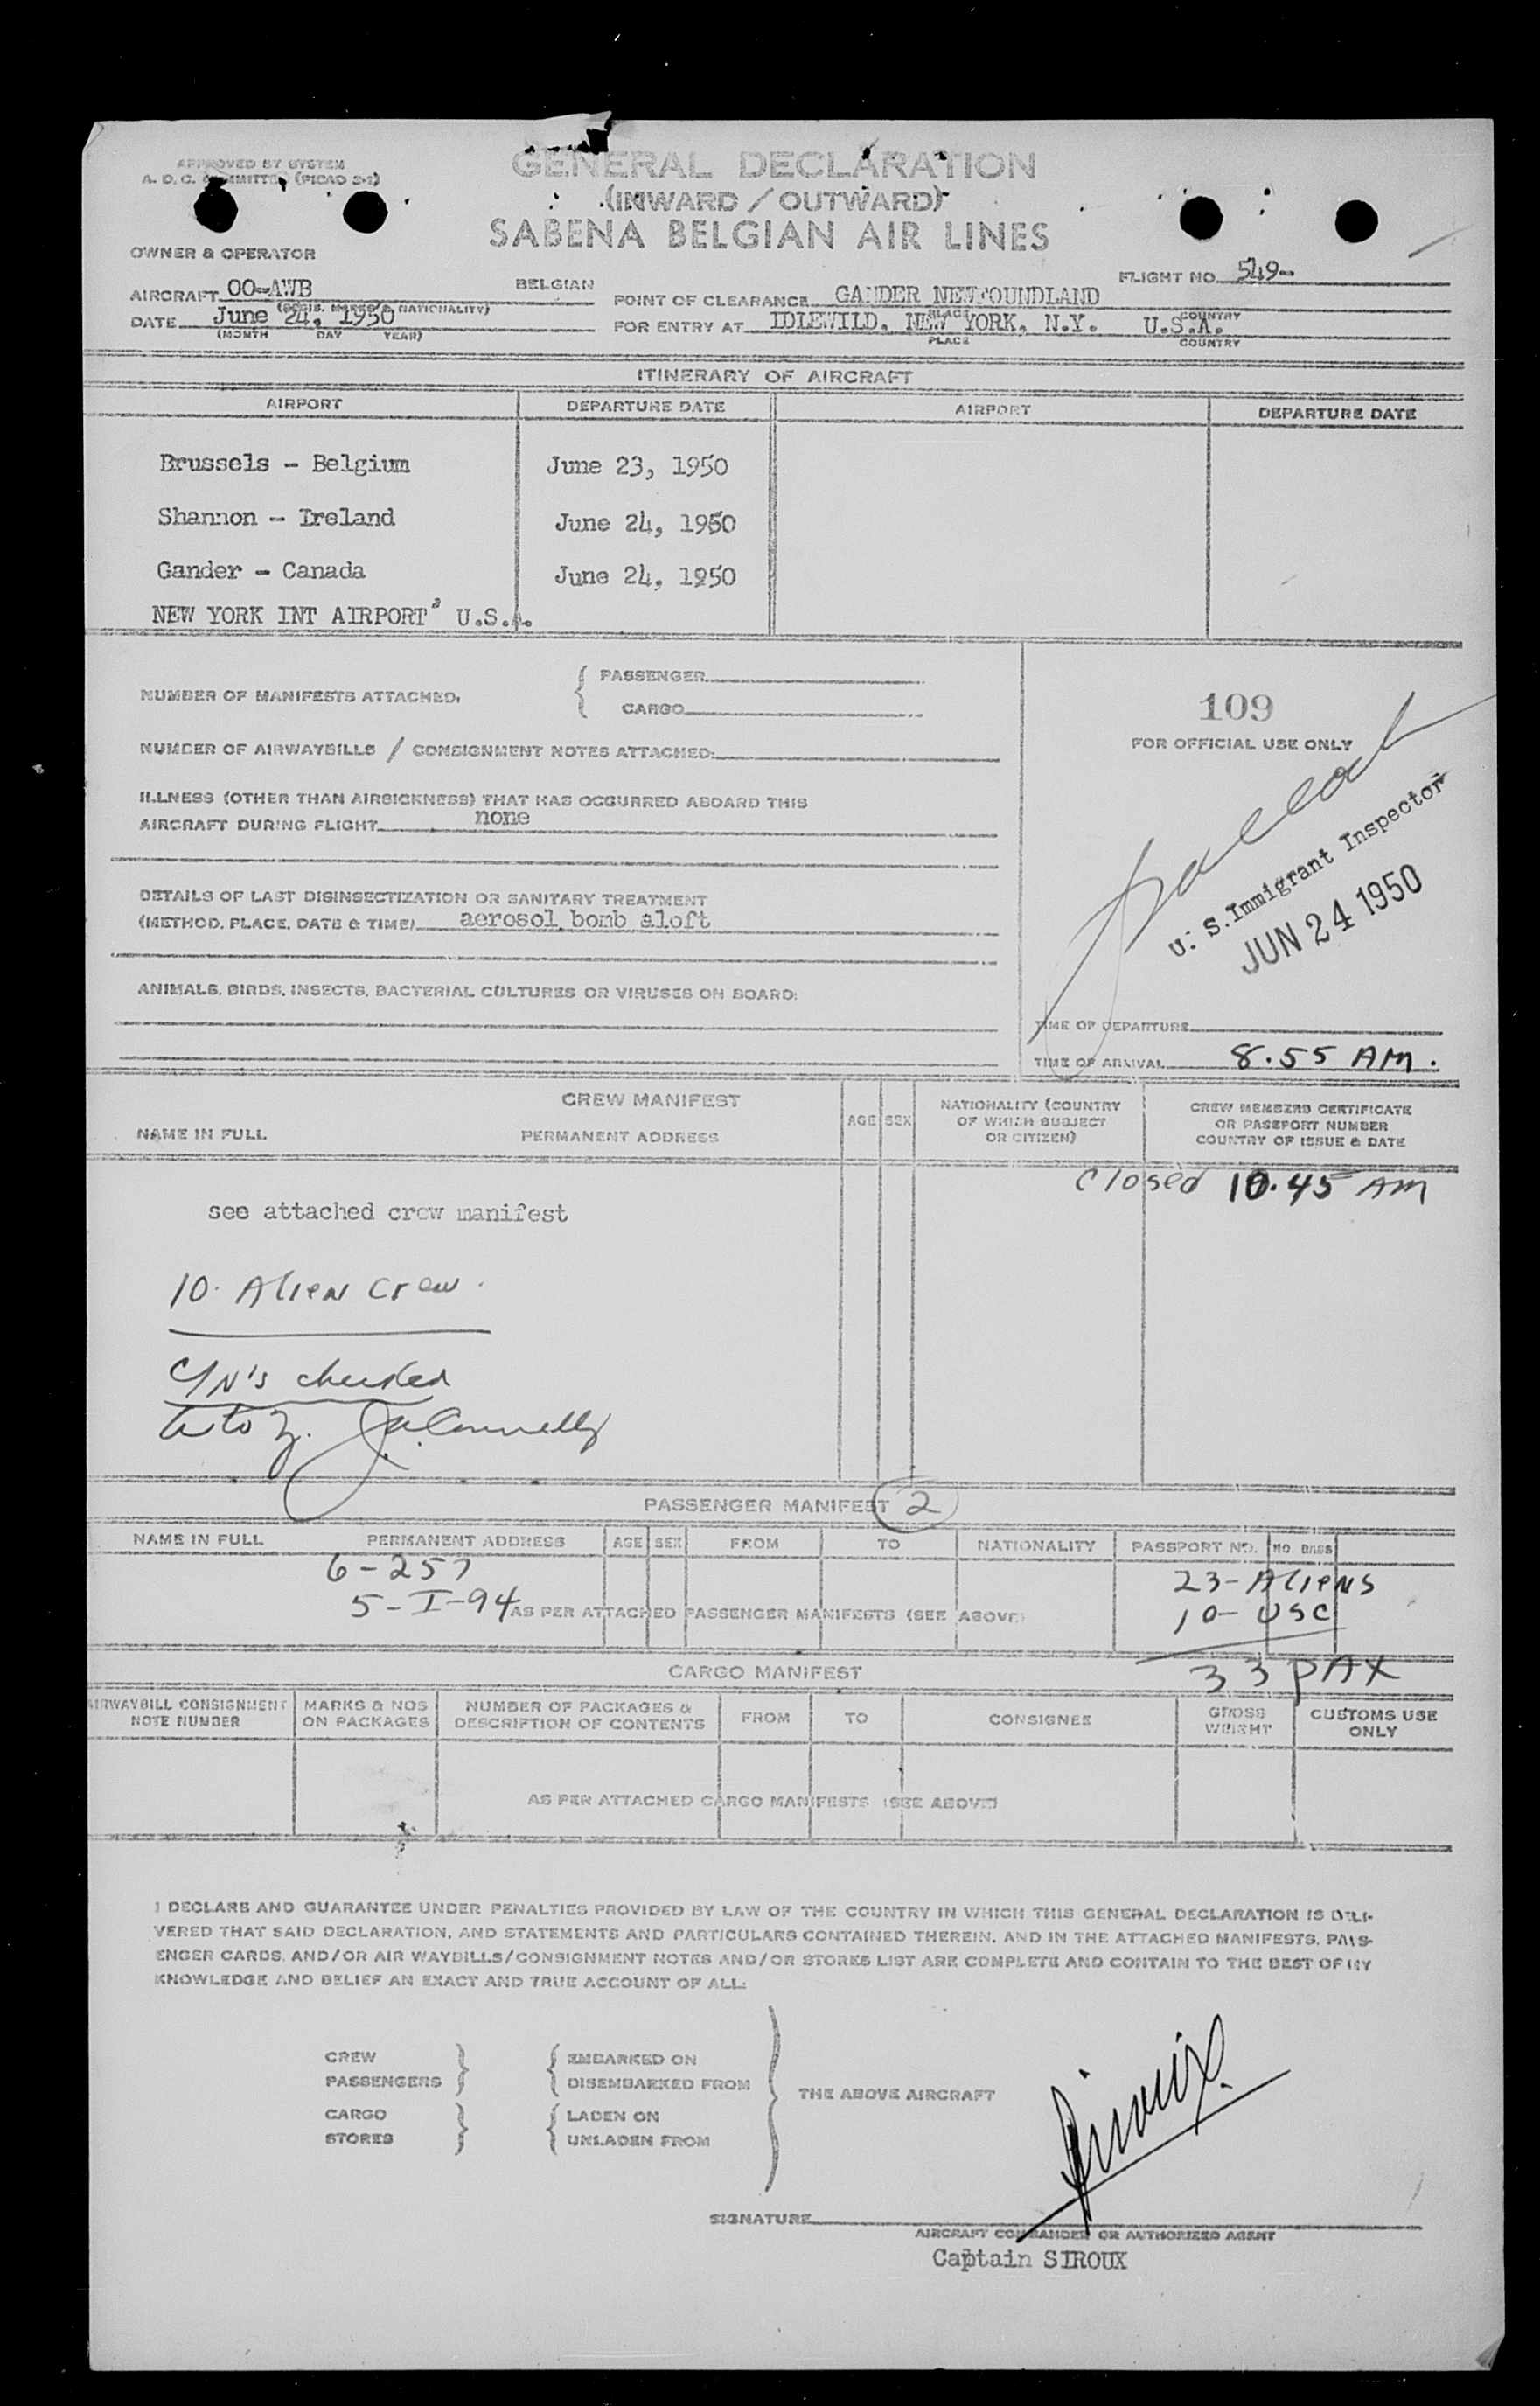 APPROVED BY SYSTEM
A. O. C. COMMITTEE (PICAO S-1)
GENERAL DECLARATION
(INWARD / OUTWARD)
SABENA BELGIAN AIR LINES
OWNER & OPERATOR
FLIGHT NO. 549-
AIRCRAFT OO-AWB BELGIAN
(REGIS. MARKS & NATIONALITY)
POINT OF CLEARANCE GANDER NEWFOUNDLAND
PLACE COUNTRY
DATE June 24, 1950
(MONTH DAY YEAR)
FOR ENTRY AT IDLEWILD, NEW YORK, N.Y. U.S.A.
PLACE COUNTRY
ITINERARY OF AIRCRAFT
AIRPORT DEPARTURE DATE AIRPORT DEPARTURE DATE
Brussels - Belgium June 23, 1950
Shannon - Ireland June 24, 1950
Gander - Canada June 24, 1950
NEW YORK INT AIRPORT U.S.A.
NUMBER OF MANIFESTS ATTACHED:
PASSENGER
CARGO
109
FOR OFFICIAL USE ONLY
NUMBER OF AIRWAYBILLS / CONSIGNMENT NOTES ATTACHED:
ILLNESS (OTHER THAN AIRSICKNESS) THAT HAS OCCURRED ABOARD THIS
AIRCRAFT DURING FLIGHT none
U. S. Immigrant Inspector
JUN 24 1950
DETAILS OF LAST DISINSECTIZATION OR SANITARY TREATMENT
(METHOD, PLACE, DATE & TIME) aerosol bomb aloft
ANIMALS, BIRDS, INSECTS, BACTERIAL CULTURES OR VIRUSES ON BOARD:
TIME OF DEPARTURE
TIME OF ARRIVAL 8.55 AM.
CREW MANIFEST
NAME IN FULL PERMANENT ADDRESS AGE SEX NATIONALITY (COUNTRY OF WHICH SUBJECT OR CITIZEN) CREW MEMBERS CERTIFICATE OR PASSPORT NUMBER COUNTRY OF ISSUE & DATE
Closed 10.45 AM
see attached crew manifest
10. Alien Crew.
C/N's checked
A to Z. J.A. Connelly
PASSENGER MANIFEST 2
NAME IN FULL PERMANENT ADDRESS AGE SEX FROM TO NATIONALITY PASSPORT NO. NO. BAGS
6-257
23-Aliens
5-I-94
AS PER ATTACHED PASSENGER MANIFESTS (SEE ABOVE)
10-USC
33 PAX
CARGO MANIFEST
AIRWAYBILL CONSIGNMENT NOTE NUMBER MARKS & NOS ON PACKAGES NUMBER OF PACKAGES & DESCRIPTION OF CONTENTS FROM TO CONSIGNEE GROSS WEIGHT CUSTOMS USE ONLY
AS PER ATTACHED CARGO MANIFESTS (SEE ABOVE)
I DECLARE AND GUARANTEE UNDER PENALTIES PROVIDED BY LAW OF THE COUNTRY IN WHICH THIS GENERAL DECLARATION IS DELI-
VERED THAT SAID DECLARATION, AND STATEMENTS AND PARTICULARS CONTAINED THEREIN, AND IN THE ATTACHED MANIFESTS, PASS-
ENGER CARDS, AND/OR AIR WAYBILLS/CONSIGNMENT NOTES AND/OR STORES LIST ARE COMPLETE AND CONTAIN TO THE BEST OF MY
KNOWLEDGE AND BELIEF AN EXACT AND TRUE ACCOUNT OF ALL:
CREW EMBARKED ON
PASSENGERS DISEMBARKED FROM
THE ABOVE AIRCRAFT
CARGO LADEN ON
STORES UNLADEN FROM
Siroux.
SIGNATURE
AIRCRAFT COMMANDER OR AUTHORIZED AGENT
Captain SIROUX